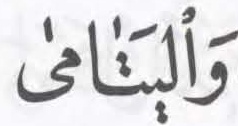 وَٱليَتَامىٰ